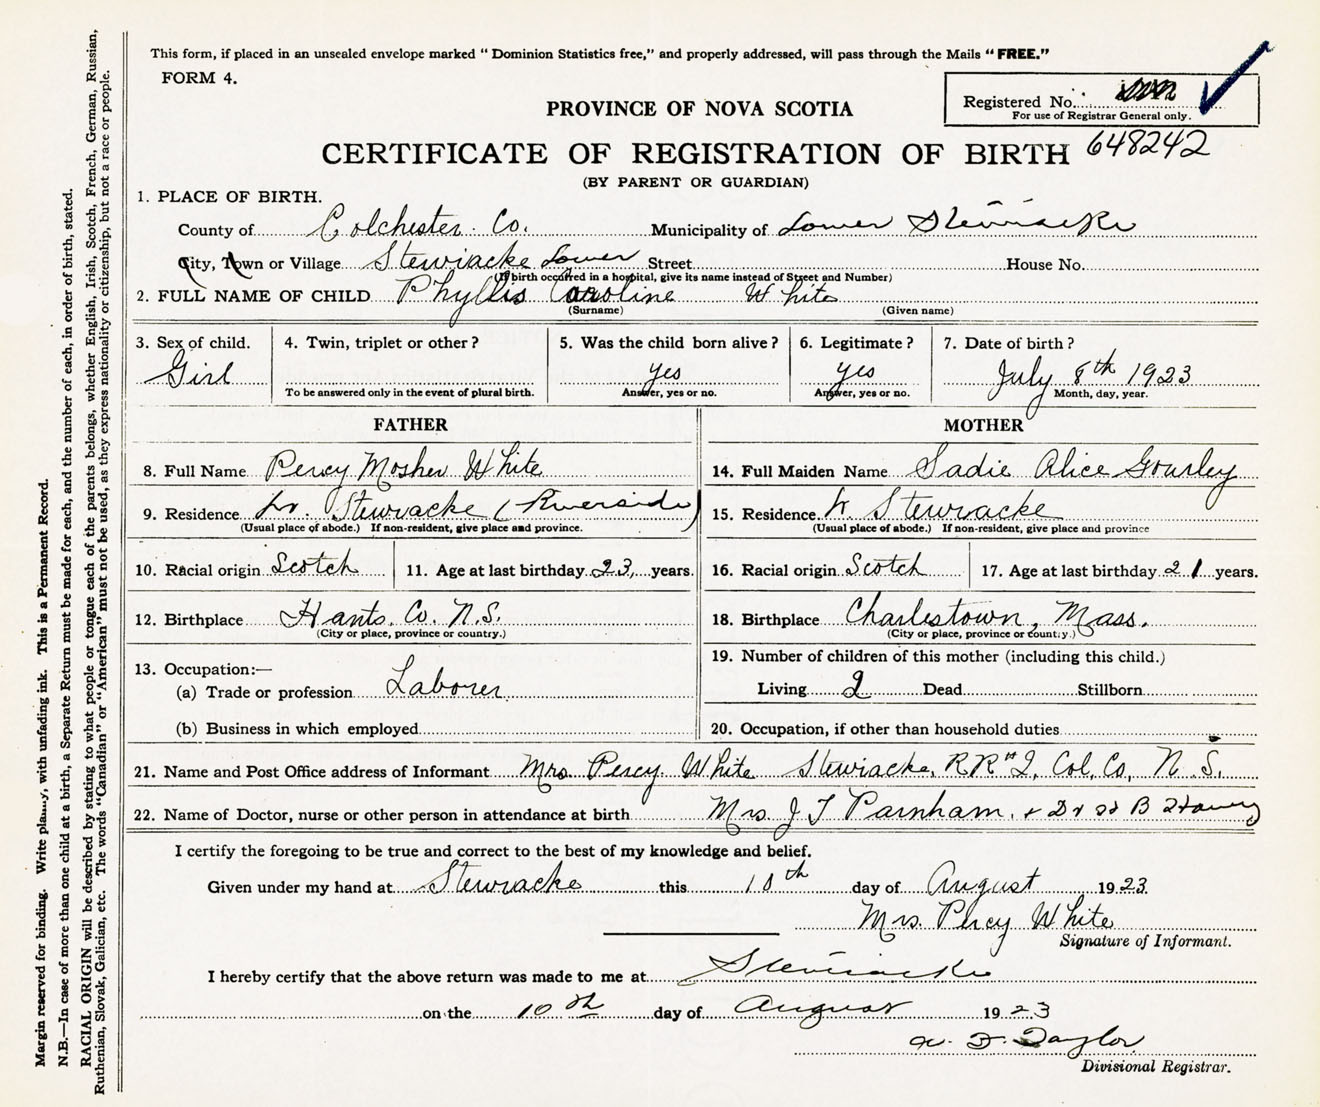 This form, if placed in an unsealed envelope marked "Dominion Statistics free," and properly addressed, will pass through the Mails "FREE."
FORM 4.
Registered No.
For use of Registrar General only.
PROVINCE OF NOVA SCOTIA
648242
CERTIFICATE OF REGISTRATION OF BIRTH
(BY PARENT OR GUARDIAN)
1. PLACE OF BIRTH.
County of Colchester Co. Municipality of Lower Stewiacke
City, Town or Village Stewiacke Lower Street House No.
(If birth occurred in a hospital, give its name instead of Street and Number)
2. FULL NAME OF CHILD Phyllis Caroline White
(Surname) (Given name)
3. Sex of child. 4. Twin, triplet or other? 5. Was the child born alive? 6. Legitimate? 7. Date of birth?
Girl yes yes July 8th 1923
To be answered only in the event of plural birth. Answer, yes or no. Answer, yes or no. Month, day, year.
FATHER MOTHER
8. Full Name Percy Mosher White 14. Full Maiden Name Sadie Alice Gourley
9. Residence Lr. Stewiacke (Riverside) 15. Residence Stewiacke
(Usual place of abode.) If non-resident, give place and province. (Usual place of abode.) If non-resident, give place and province
10. Racial origin Scotch 11. Age at last birthday 23 years. 16. Racial origin Scotch 17. Age at last birthday 21 years.
12. Birthplace Hants. Co. N.S. 18. Birthplace Charlestown, Mass.
(City or place, province or country.) (City or place, province or country.)
13. Occupation:— 19. Number of children of this mother (including this child.)
(a) Trade or profession Laborer Living 2 Dead Stillborn
(b) Business in which employed 20. Occupation, if other than household duties
21. Name and Post Office address of Informant Mrs. Percy White Stewiacke, RR#2, Col. Co, N.S.
22. Name of Doctor, nurse or other person in attendance at birth Mrs. J T Parnham, + Dr B
I certify the foregoing to be true and correct to the best of my knowledge and belief.
Given under my hand at Stewiacke this 10th day of August 1923
Mrs. Percy White
Signature of Informant.
I hereby certify that the above return was made to me at Stewiacke
on the 10th day of August 1923
Taylor
Divisional Registrar.
Margin reserved for binding. Write plainly, with unfading ink. This is a Permanent Record.
N.B.—In case of more than one child at a birth, a Separate Return must be made for each, and the number of each, in order of birth, stated.
RACIAL ORIGIN will be described by stating to what people or tongue each of the parents belongs, whether English, Irish, Scotch, French, German, Russian,
Ruthenian, Slovak, Galician, etc. The words "Canadian" or "American" must not be used, as they express nationality or citizenship, but not a race or people.